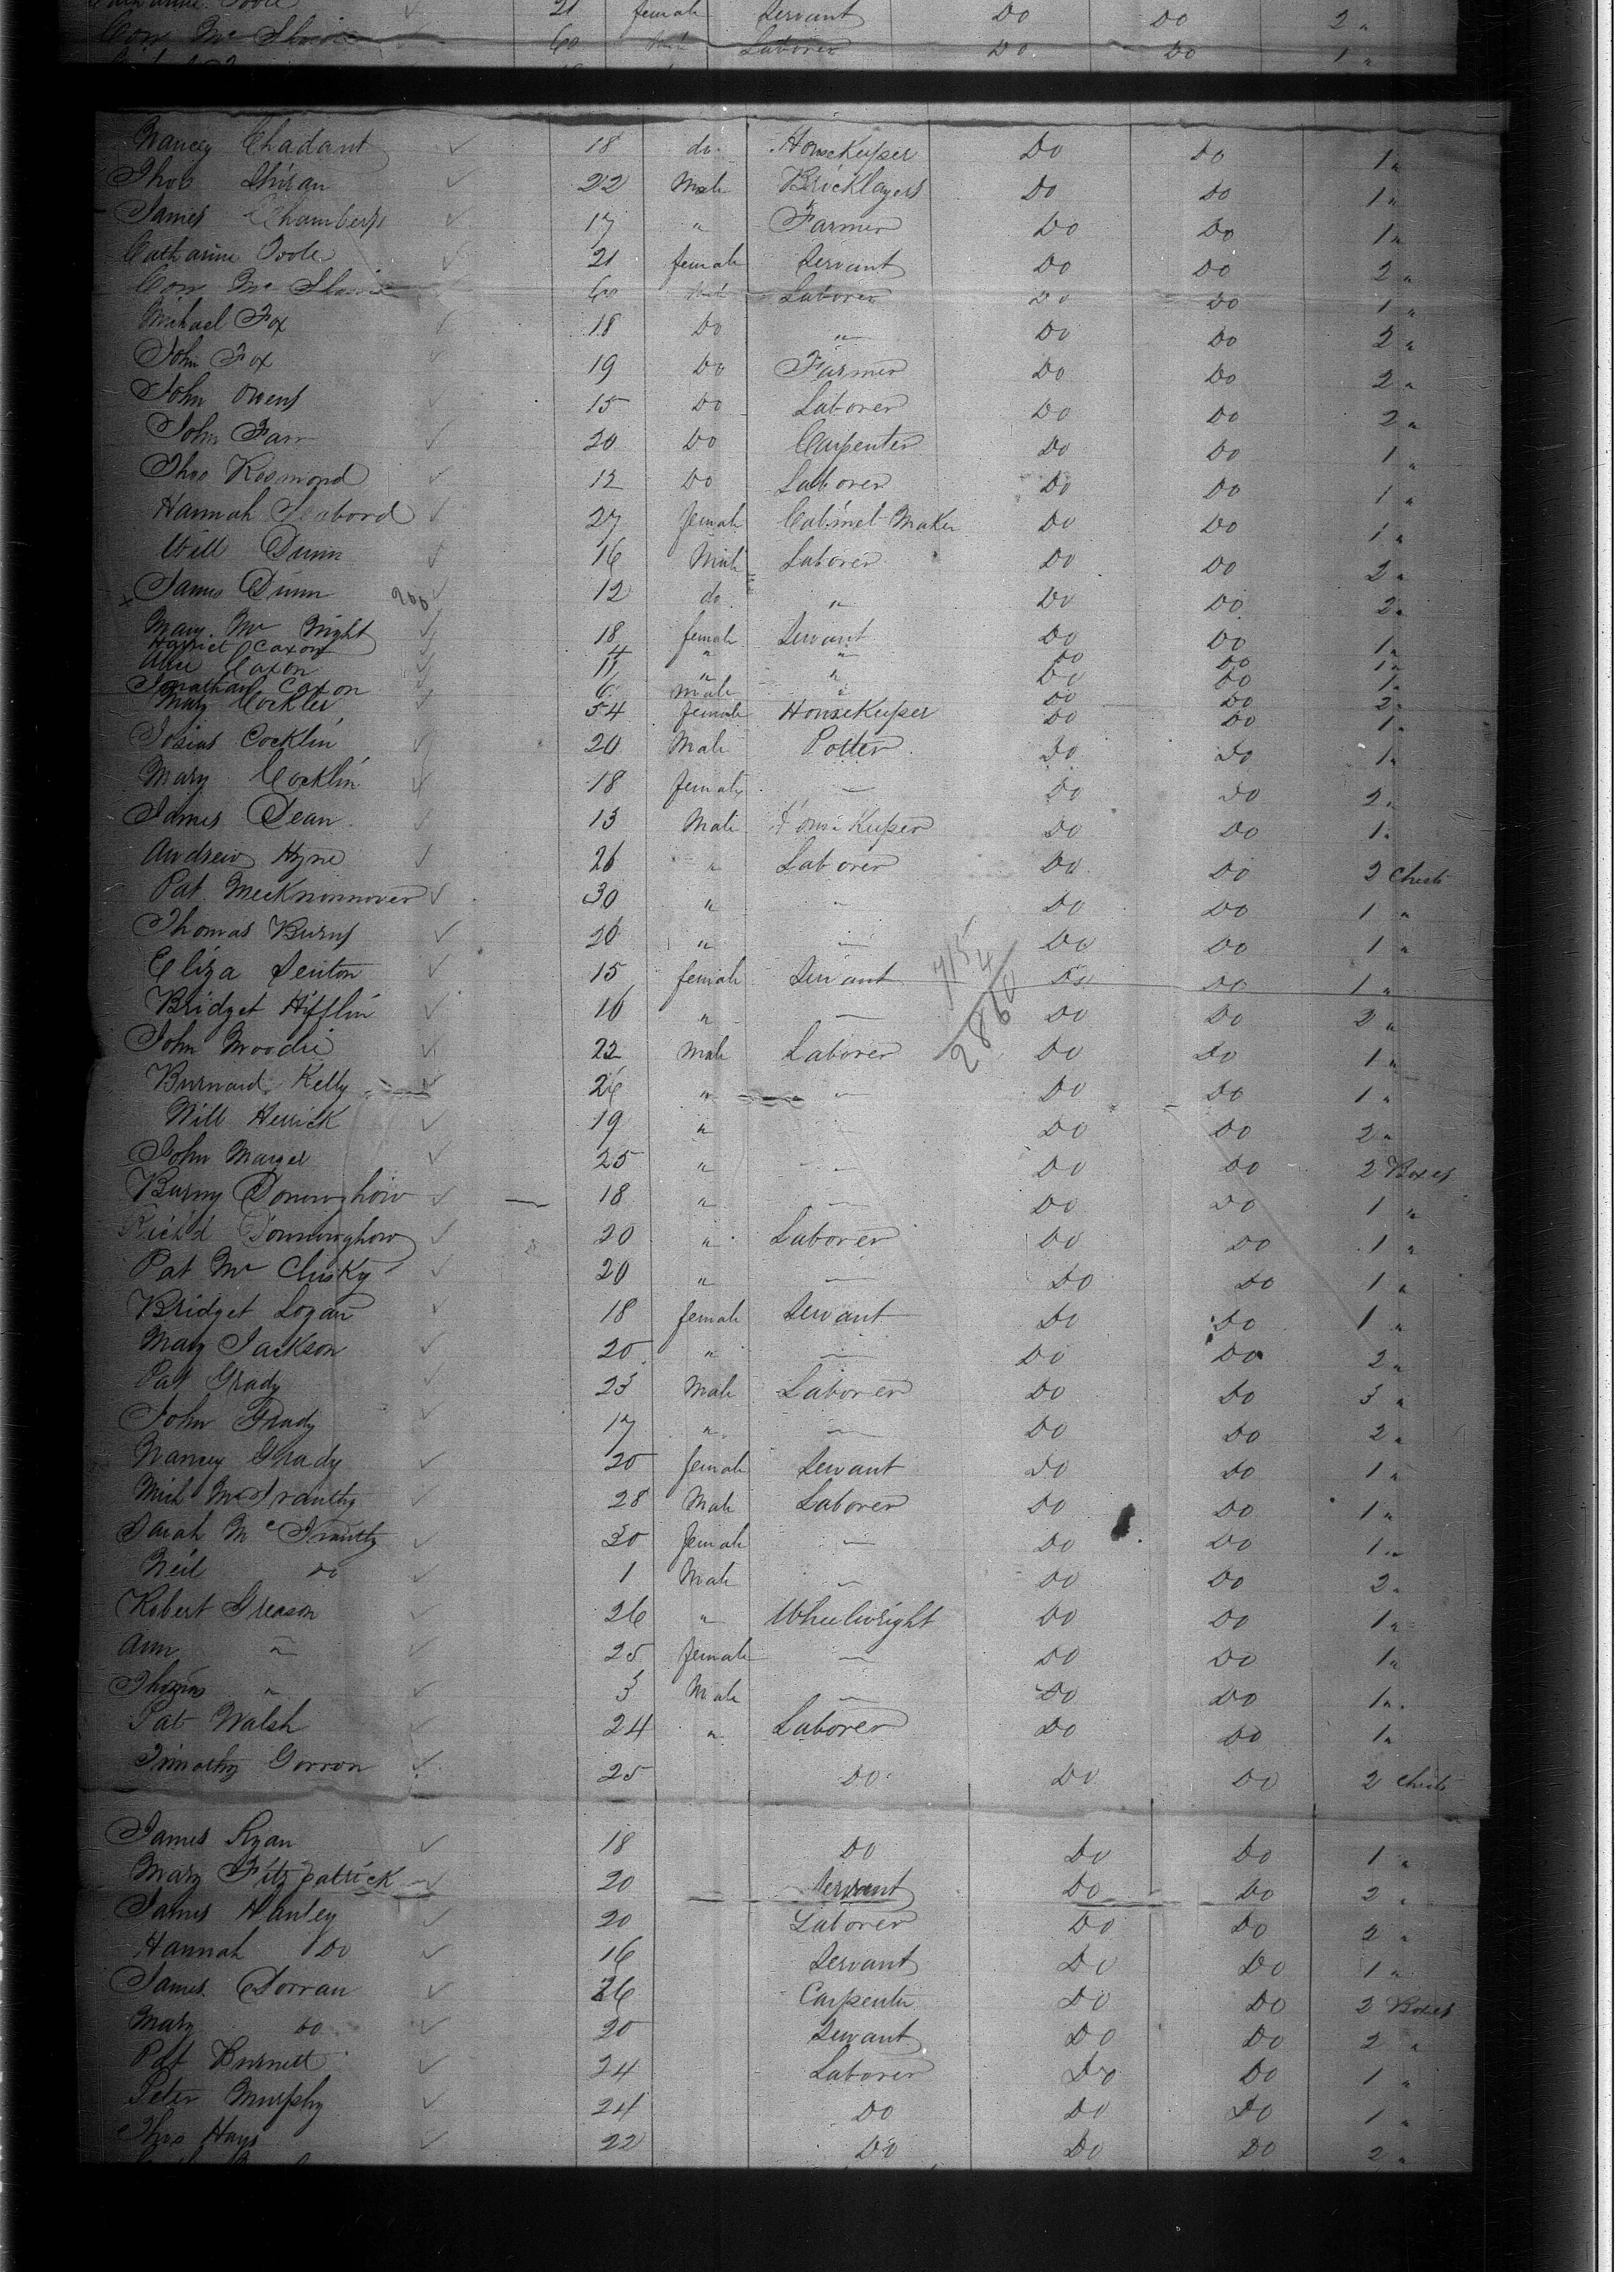 Catharine Toole 21 female Servant Do Do 2 "
Con Mc 60 Male Laborer Do Do 1 "
Nancy Chadant 18 do Housekeeper Do Do 1 "
Thos Shiran 22 Male Bricklayers Do Do 1 "
James Chambers 17 " Farmer Do Do 1 "
Catharine Toole 21 female Servant Do Do 2 "
Con Mc 60 Male Laborer Do Do 1 "
Michael Fox 18 Do " Do Do 2 "
John Fox 19 Do Farmer Do Do 2 "
John Owens 15 Do Laborer Do Do 2 "
John Farr 20 Do Carpenter Do Do 1 "
Thos Rosmond 12 Do Laborer Do Do 1 "
Hannah Seabord 27 female Cabinet Maker Do Do 1 "
Will Dunn 16 Male Laborer Do Do 2 "
x James Dunn 200 12 do " Do Do 2 "
Mary Mc Night 18 female Servant Do Do 1 "
Harriet Caxon 4 " " Do Do 1 "
Alice Caxon 11 " " Do Do 1 "
Jonathan Caxon 6 male " Do Do 2 "
Mary Cockler 54 female Housekeeper Do Do 1 "
Josias Cocklin 20 Male Potter Do Do 1 "
Mary Cocklin 18 female — Do Do 2 "
James Dean 13 Male Housekeeper Do Do 1 "
Andrew Hyne 26 " Laborer Do Do 2 Chests
Pat Mecknonnover 30 " - Do Do 1 "
Thomas Burns 20 " — Do Do 1 "
Eliza Senton 15 female Servant Do Do 1 "
7154
2860
Bridget Hifflin 16 " — Do Do 2 "
John Moodie 22 Male Laborer Do Do 1 "
Burnard Kelly 26 " - Do Do 1 "
Will Herrick 19 " Do Do 2 "
John Marger 25 " - - Do Do 2 Boxes
Burny Donnoghow 18 " — Do Do 1 "
Rich'd Donnoughow 20 " Laborer Do Do 1 "
Pat Mc Clusky 20 " — Do Do 1 "
Bridget Logan 18 female Servant Do Do 1 "
Mary Jackson 20 " — Do Do 2 "
Pat Grady 23 Male Laborer Do Do 3 "
John Grady 17 " — Do Do 2 "
Nancy Grady 20 female Servant Do Do 1 "
Mich McGranthy 28 Male Laborer Do Do 1 "
Sarah McGranthy 30 female — Do Do 1 "
Neil Do 1 Male — Do Do 2 "
Robert Greason 26 " Wheelwright Do Do 1 "
Ann " 25 female — Do Do 1 "
Thomas " 3 Male — Do Do 1 "
Pat Walsh 24 " Laborer Do Do 1 "
Timothy Gorron 25 Do Do Do 2 Chests
James Ryan 18 Do Do Do 1 "
Mary Fitzpatrick 20 Servant Do Do 2 "
James Hanley 20 Laborer Do Do 2 "
Hannah Do 16 Servant Do Do 1 "
James Dorran 26 Carpenter Do Do 2 Boxes
Mary Do 20 Servant Do Do 2 "
Pat Burnett 24 Laborer Do Do 1 "
Peter Murphy 24 Do Do Do 1 "
Thos Hays 22 Do Do Do 2 "